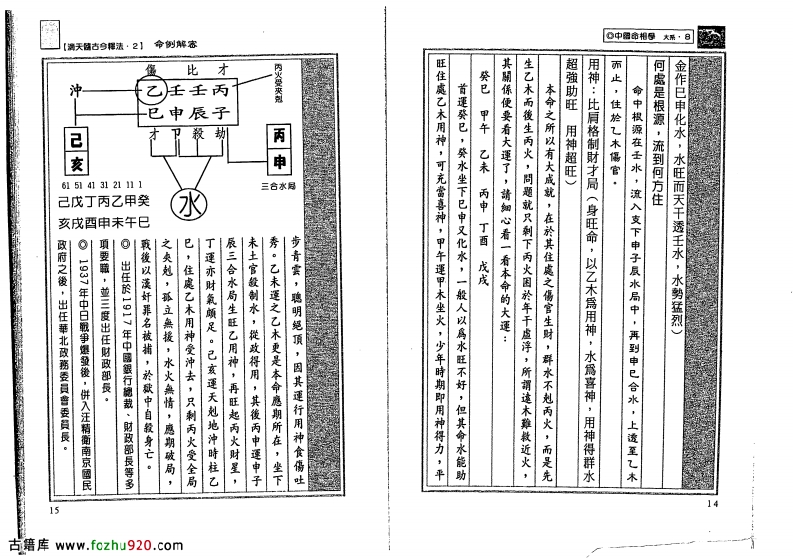 ◎中國命相學 大系・8
金作巳申化水，水旺而天干透壬水，水勢猛烈）
何處是根源，流到何方住
命中根源在壬水，流入支下申子辰水局中，再到申巳合水，上透至乙木
而止，住於乙木傷官。
用神：比肩格制財才局（身旺命，以乙木爲用神，水爲喜神，用神得群水
超強助旺　用神超旺）
本命之所以有大成就，在於其住處之傷官生財，群水不剋丙火，而是先
生乙木而後生丙火，問題就只剩下丙火困於年干虛浮，所謂遠木難救近火，
其關係便要看大運了，請細心看一看本命的大運：
癸巳　甲午　乙未　丙申　丁酉　戊戌
首運癸巳，癸水坐下巳申又化水，一般人以爲水旺不好，但其命水能助
旺住處乙木用神，可充當喜神，甲午運甲木坐火，少年時期即用神得力，平
14
【滴天髓古今釋法・2】 命例解密
傷 比 才
乙壬壬丙
巳申辰子
才 卩 殺 劫
丙火受夾剋
沖
己亥
丙申
三合水局
水
61 51 41 31 21 11 1
己戊丁丙乙甲癸
亥戌酉申未午巳
步青雲，聰明絕頂，因其運行用神食傷吐
秀。乙未運之乙木更是本命應期所在，坐下
未土官殺制水，從政得用，其後丙申運申子
辰三合水局生旺乙用神，再旺起丙火財星，
丁運亦財氣頗足。己亥運天剋地沖時柱乙
巳，住處乙木用神受沖去，只剩丙火受全局
之夾剋，孤立無援，水火無情，應期破局，
戰後以漢奸罪名被捕，於獄中自殺身亡。
◎ 出任於1917年中國銀行總裁、財政部長等多
項要職，並三度出任財政部長。
◎ 1937年中日戰爭爆發後，併入汪精衛南京國民
政府之後，出任華北政務委員會委員長。
15
古籍库 www.fozhu920.com